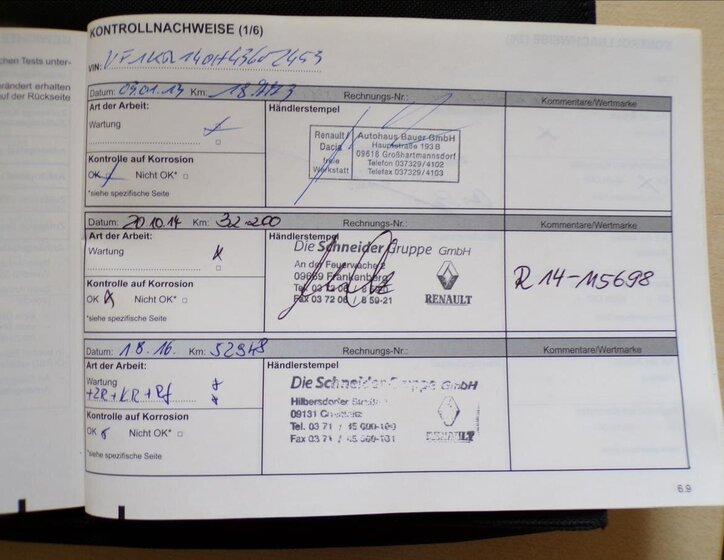 KONTROLLNACHWEISE (1/6)
chen Tests unter-
VIN:
erändert erhalten
uf der Rückseite
Datum: 09.01.13 Km: Rechnungs-Nr.: Kommentare/Wertmarke
Art der Arbeit: Händlerstempel
Wartung
Renault/ Dacia freie Werkstatt
Autohaus Bauer GmbH
Hauptstraße 193B
09618 Großhartmannsdorf
Telefon 037329/4102
Telefax 037329/4103
Kontrolle auf Korrosion
OK Nicht OK*
*siehe spezifische Seite
Datum: 20.10.14 Km: 32200 Rechnungs-Nr.: Kommentare/Wertmarke
Art der Arbeit: Händlerstempel
Wartung
Die Schneider Gruppe GmbH
An der Feuerwache 2
09669 Frankenberg
Tel 03 72 06
Fax 03 72 06 8 59-21
RENAULT
R 14-115698
Kontrolle auf Korrosion
OK Nicht OK*
*siehe spezifische Seite
Datum: 1 8.16. Km: 52948 Rechnungs-Nr.: Kommentare/Wertmarke
Art der Arbeit: Händlerstempel
Wartung
+ZR+KR+Rf
Die Schneider Gruppe GmbH
Hilbersdorfer
09131
Tel. 03 71 /
Fax 03 71 /
RENAULT
Kontrolle auf Korrosion
OK Nicht OK*
*siehe spezifische Seite
6.9